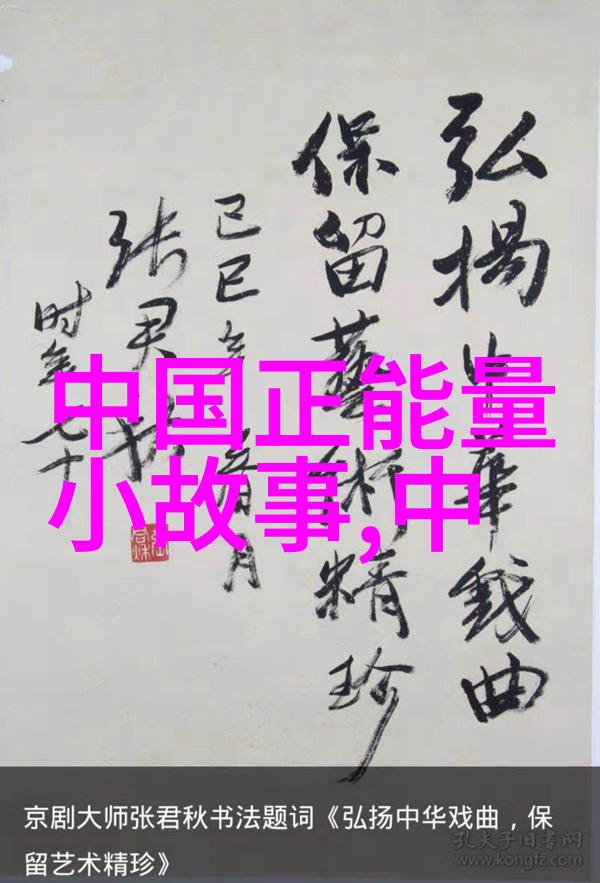 弘揚中華戏曲
保留藝術精珍
己巳年月
张君秋
时年七十
中国正能量
小故事,中
京剧大师张君秋书法题词《弘扬中华戏曲，保
留艺术精珍》
孔夫子旧书网
www.kongfz.com